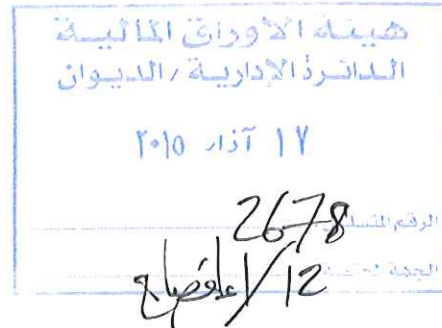 هيئة الأوراق المالية
الدائرة الإدارية / الديوان
١٧ آذار ٢٠١٥
الرقم المتسلسل 2678
الجهة المختصة 12 / الإفصاح